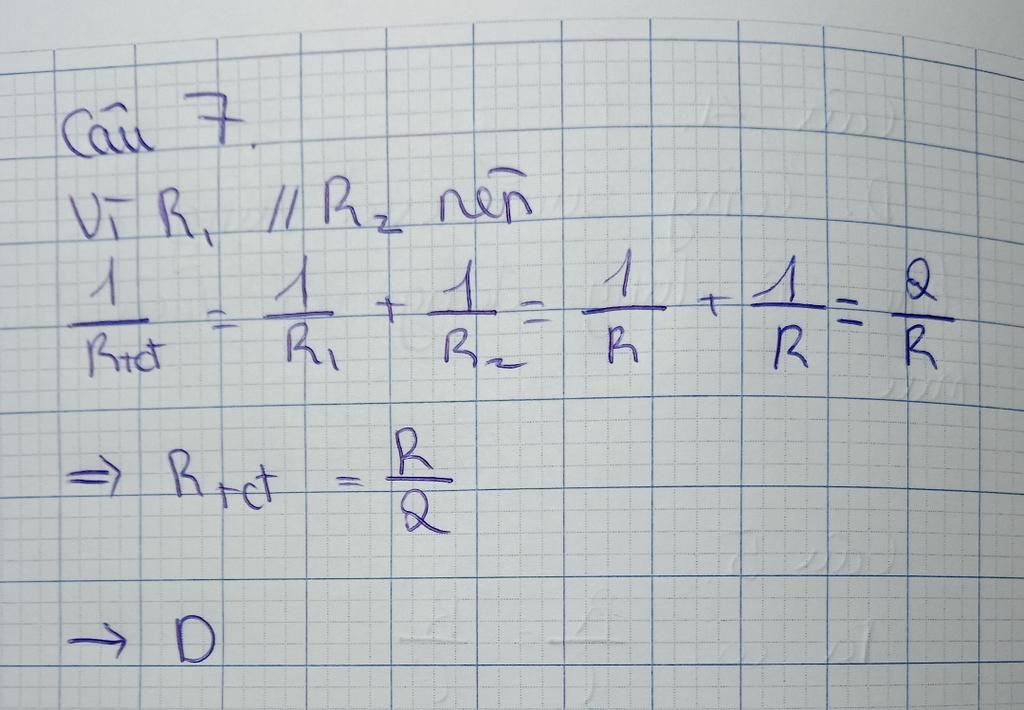 Câu 7.
Vì R₁ // R₂ nên
1/Rtđ = 1/R₁ + 1/R₂ = 1/R + 1/R = 2/R
⇒ Rtđ = R/2
→ D